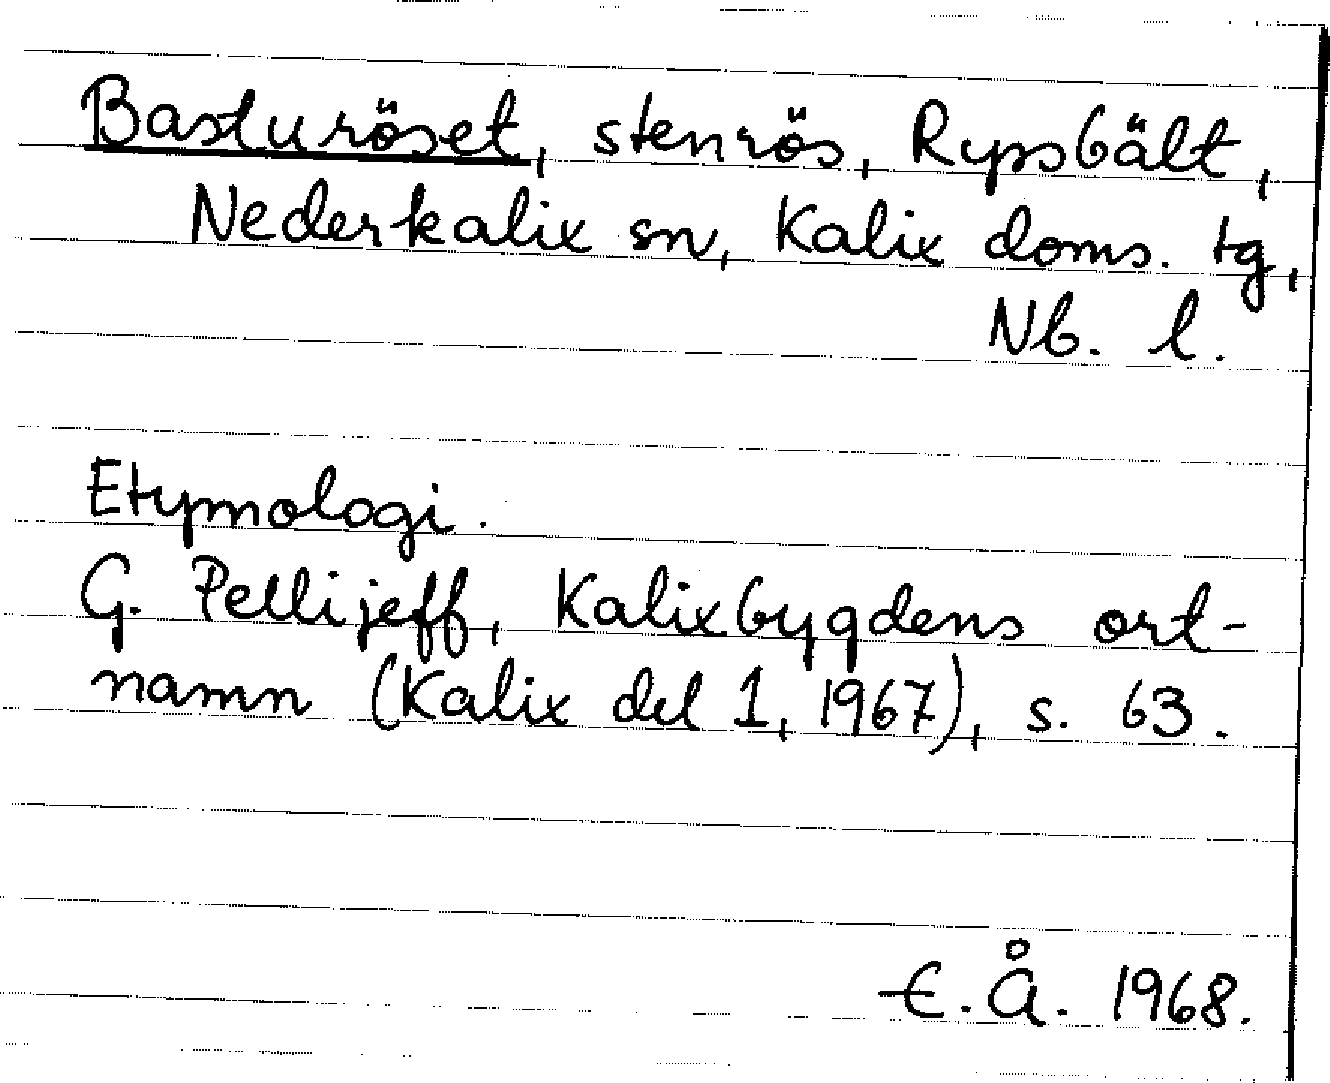 Basturöset, stenrös, Ryssbält,
Nederkalix sn, Kalix doms. tg,
Nb. l.
Etymologi.
G. Pellijeff, Kalixbygdens ort-
namn (Kalix del 1, 1967), s. 63.
E.Å. 1968.